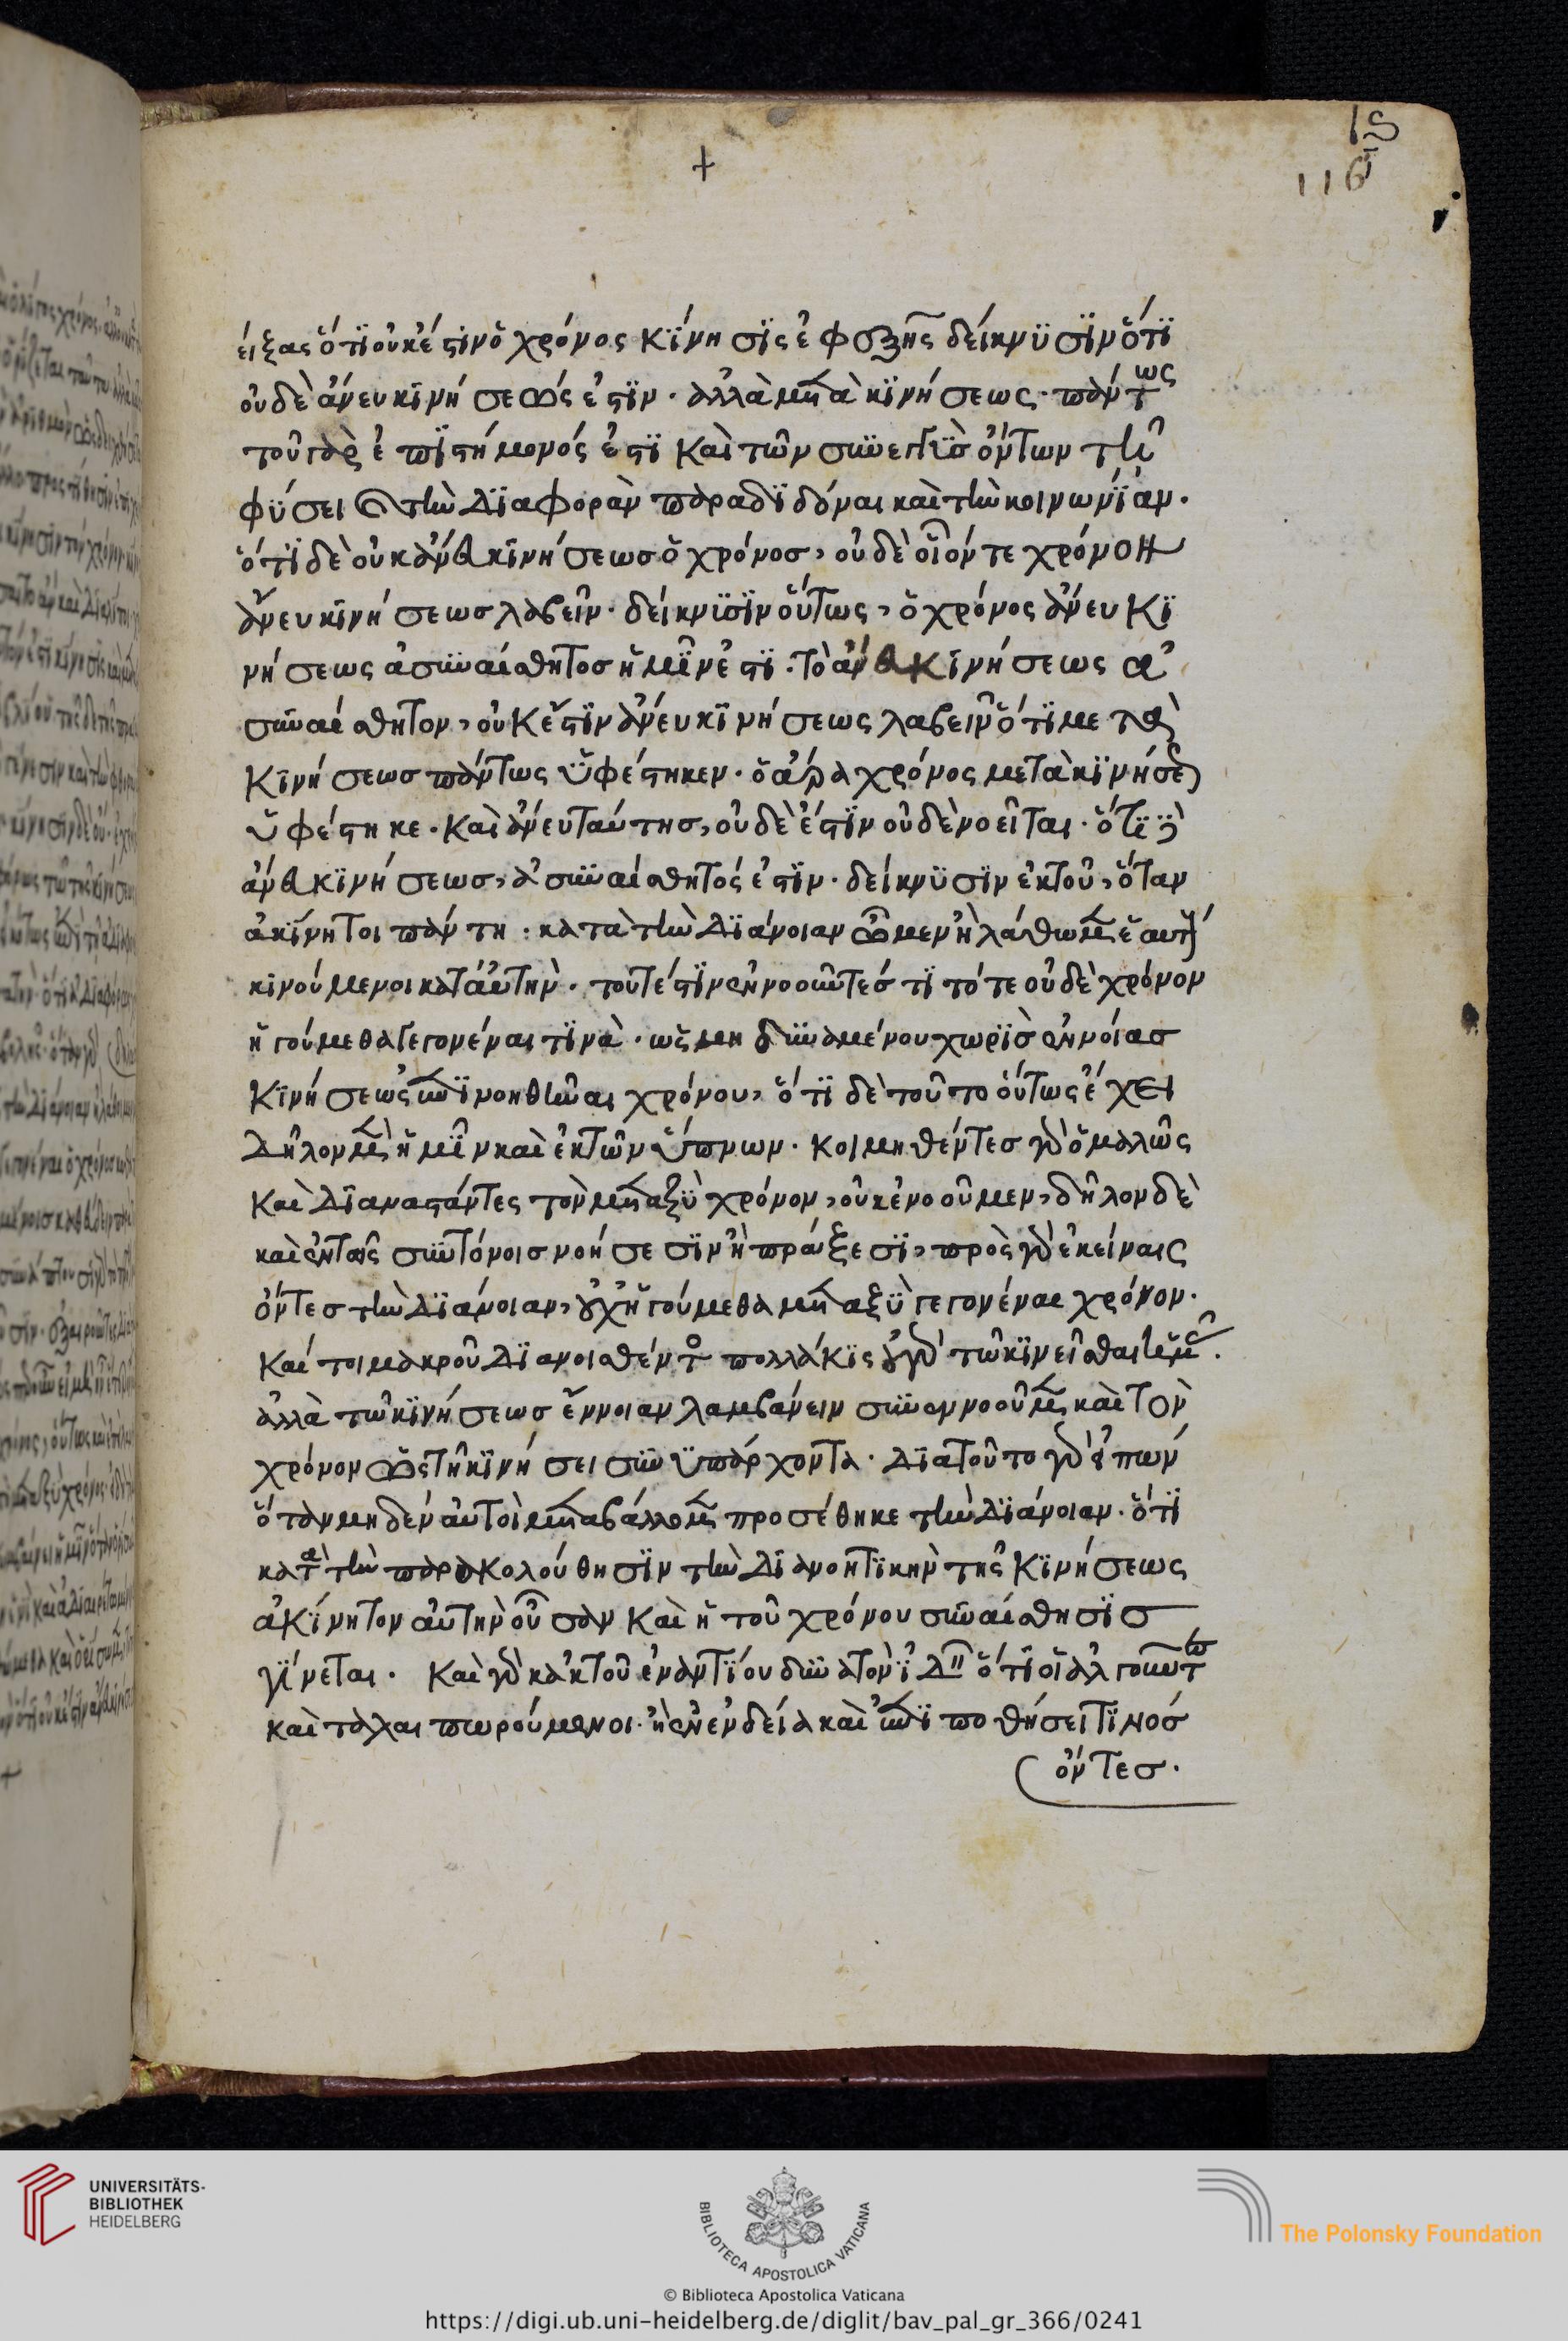 +
116
είξας ὅτι οὐκ έστιν ὁ χρόνος κίνησις ἐφεξῆς δείκνυσιν ὅτι
οὐδὲ ἄνευ κινήσεώς ἐστιν· ἀλλὰ μετὰ κινήσεως· πάντως
τοῦ γὰρ ἐπιστήμονός ἐστι καὶ τῶν συνεγγὺς ὄντων τῆ
φύσει καὶ τὴν διαφορὰν παραδιδόναι καὶ τὴν κοινωνίαν·
ὅτι δὲ οὐκ άνευ κινήσεως ὁ χρόνος, οὐδὲ οἷόν τε χρόνον
ἄνευ κινήσεως λαβεῖν· δείκνυσιν οὕτως, ὁ χρόνος ἄνευ κι
νήσεως ἀσυναίσθητος ἡμῖν ἐστι· τὸ ἄνευ κινήσεως ἀ
συναίσθητον, οὐκ ἔστιν ἄνευ κινήσεως λαβεῖν ὅτι μετὰ
κινήσεως πάντως ὑφέστηκεν· ὁ ἄρα χρόνος μετὰ κινήσεως
ὑφέστηκε· καὶ ἄνευ ταύτης, οὐδὲ έστιν οὐδὲ νοεῖται· ὅτι δὲ
ἄνευ κινήσεως, ἀσυναίσθητός ἐστιν· δείκνυσιν ἐκ τοῦ, ὅταν
ἀκίνητοι πάντη· κατὰ τὴν διάνοιαν ὦμεν ἢ λάθωμεν ἑαυτοὺς
κινούμενοι κατ' αὐτὴν· τουτέστιν ἐννοοῦντές τι τότε οὐδὲ χρόνον
ἡγούμεθα γεγονέναι τινὰ· ὡς μη δυναμένου χωρὶς ἐννοίας
κινήσεως ἐπινοηθῆναι χρόνου, ὅτι δὲ τοῦτο οὕτως ἔχει
δῆλον μὲν ἡμῖν καὶ ἐκ τῶν ὕπνων· κοιμηθέντες γὰρ ὁμαλῶς
καὶ διαναστάντες τὸν μεταξὺ χρόνον, οὐκ ἐνοοῦμεν, δῆλον δὲ
καὶ ἐν ταῖς συντόνοις νοήσεσιν ἢ πράξεσι, πρὸς γὰρ ἐκείναις
ὄντες τὴν διάνοιαν, οὐχ ἡγούμεθα μεταξὺ γεγονέναι χρόνον·
καί τοι μακροῦ διανοισθέντος πολλάκις οὐ γὰρ τῶ κινεῖσθαι ἡμᾶς·
ἀλλὰ τῶ κινήσεως ἔννοιαν λαμβάνειν συνεννοοῦμεν καὶ τὸν
χρόνον ὡς τῆ κινήσει συνυπάρχοντα· διὰ τοῦτο γὰρ εἰπών
ὅταν μηδὲν αὐτοὶ μεταβάλλωμεν προσέθηκε τὴν διάνοιαν· ὅτι
κατὰ τὴν παρακολούθησιν τὴν διανοητικὴν τῆς κινήσεως
ἀκίνητον αὐτὴν οὖσαν καὶ ἡ τοῦ χρόνου συναίσθησις
γίνεται· καὶ γὰρ κἀκ τοῦ ἐναντίου δυνατὸν ἰδεῖν ὅτι οἱ ἀλγοῦντες
καὶ ταλαιπωρούμενοι· ἢ ἐν ἐνδείᾳ καὶ ἐπιποθήσει τινός
ὄντες·
UNIVERSITÄTS-
BIBLIOTHEK
HEIDELBERG
BIBLIOTECA APOSTOLICA VATICANA
The Polonsky Foundation
© Biblioteca Apostolica Vaticana
https://digi.ub.uni-heidelberg.de/diglit/bav_pal_gr_366/0241